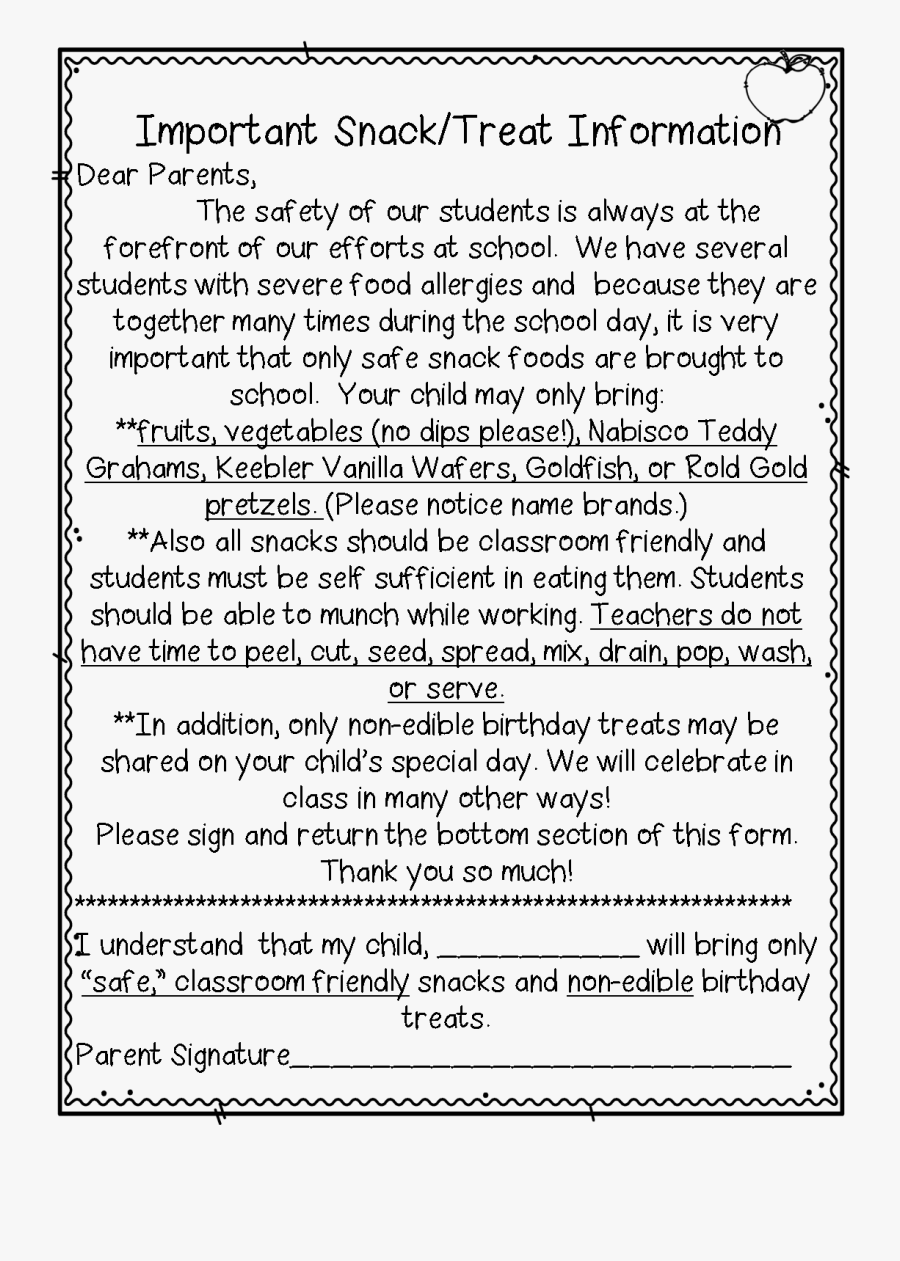 Important Snack/Treat Information
Dear Parents,
The safety of our students is always at the
forefront of our efforts at school. We have several
students with severe food allergies and because they are
together many times during the school day, it is very
important that only safe snack foods are brought to
school. Your child may only bring:
**fruits, vegetables (no dips please!), Nabisco Teddy
Grahams, Keebler Vanilla Wafers, Goldfish, or Rold Gold
pretzels. (Please notice name brands.)
**Also all snacks should be classroom friendly and
students must be self sufficient in eating them. Students
should be able to munch while working. Teachers do not
have time to peel, cut, seed, spread, mix, drain, pop, wash,
or serve.
**In addition, only non-edible birthday treats may be
shared on your child's special day. We will celebrate in
class in many other ways!
Please sign and return the bottom section of this form.
Thank you so much!
******************************************************************
I understand that my child, __________ will bring only
"safe," classroom friendly snacks and non-edible birthday
treats.
Parent Signature_________________________